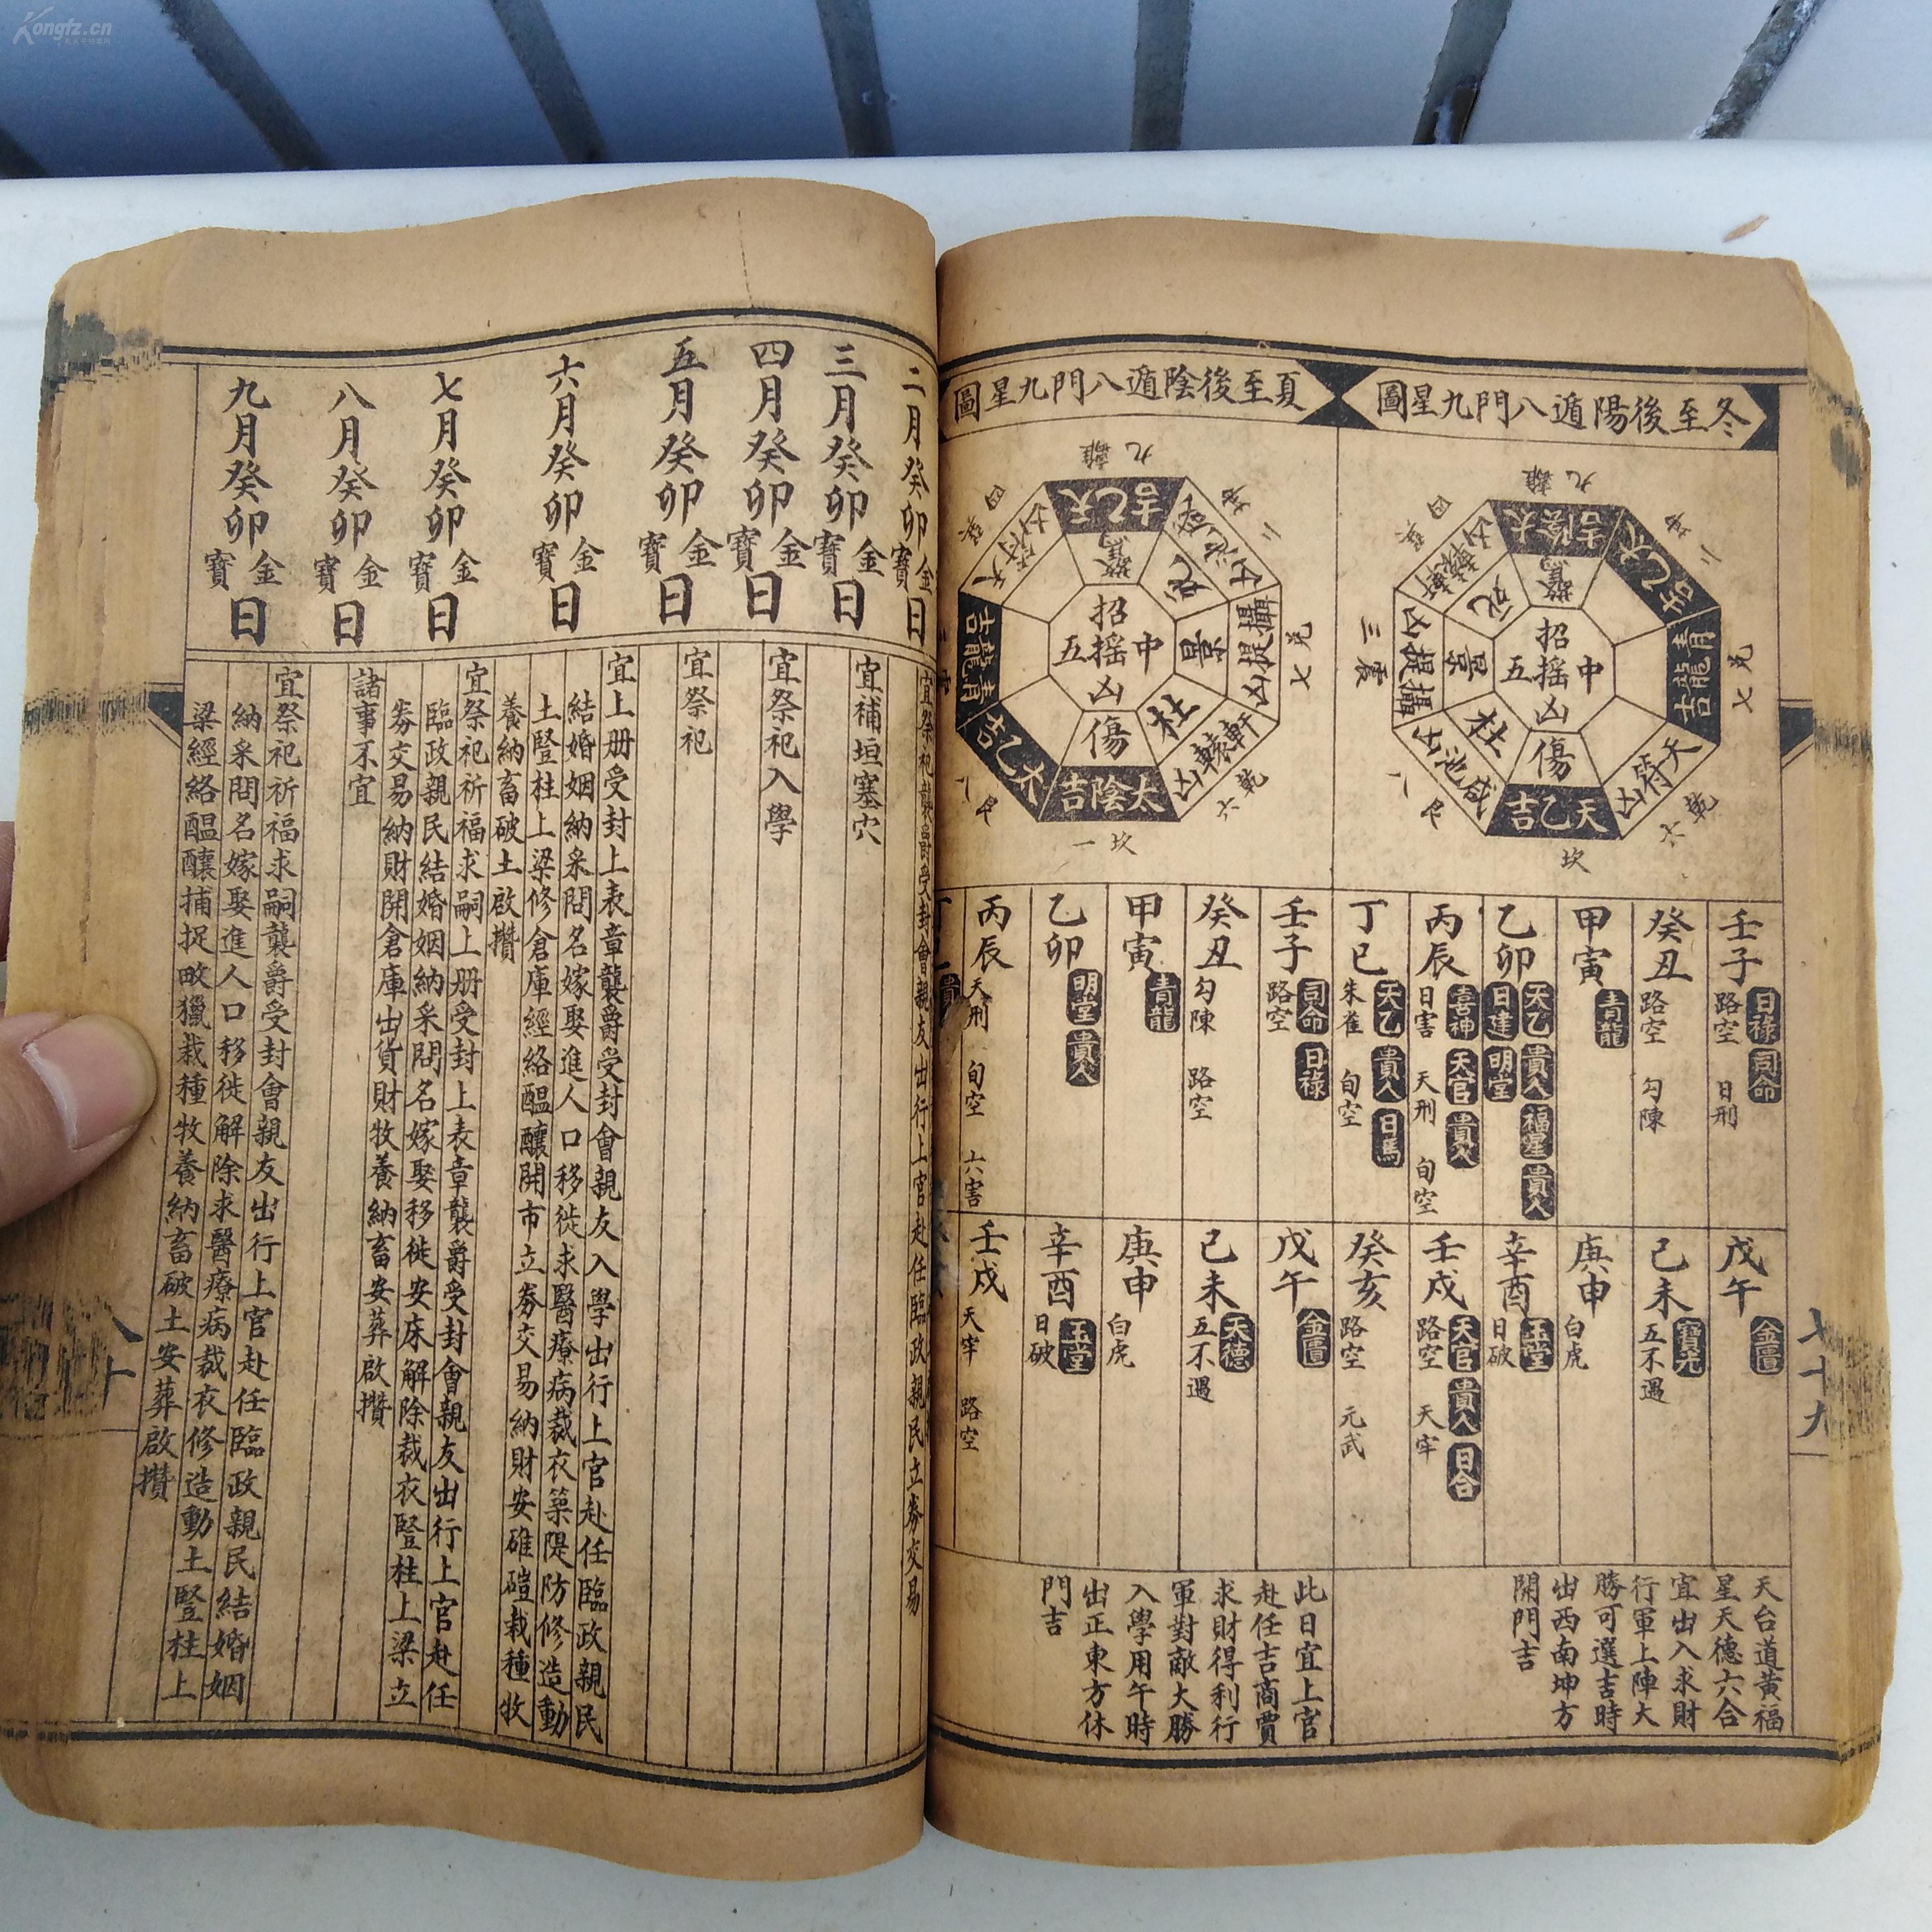 Kongfz.cn
冬至後陽遁八門九星圖
九離
二坤
七兌
六乾
坎
八艮
三震
四巽
太陰吉
太乙吉
青龍吉
天符凶
天乙吉
咸池凶
攝提凶
軒轅凶
驚
死
景
杜
傷
招搖凶
五中
夏至後陰遁八門九星圖
九離
二坤
七兌
六乾
一坎
八艮
四巽
天乙吉
咸池凶
攝提凶
軒轅凶
太陰吉
太乙吉
青龍吉
天符凶
驚
死
景
杜
傷
招搖凶
五中
壬子 日祿 司命 路空 日刑
癸丑 路空 勾陳
甲寅 青龍
乙卯 天乙貴人 福星貴人 日建 明堂
丙辰 喜神 天官貴人 日害 天刑 旬空
丁巳 天乙貴人 日馬 朱雀 旬空
戊午 金匱
己未 寶光 五不遇
庚申 白虎
辛酉 玉堂 日破
壬戌 天官貴人 日合 路空 天牢
癸亥 路空 元武
天台道黃福
星天德六合
宜出入求財
行軍上陣大
勝可選吉時
出西南坤方
開門吉
壬子 司命 日祿 路空
癸丑 勾陳 路空
甲寅 青龍
乙卯 明堂 貴人
丙辰 天刑 旬空 六害
戊午 金匱
己未 天德 五不遇
庚申 白虎
辛酉 玉堂 日破
壬戌 天牢 路空
此日宜上官
赴任吉商賈
求財得利行
軍對敵大勝
入學用午時
出正東方休
門吉
七十九
二月癸卯金寶日
宜祭祀襲爵受封會親友出行上官赴任臨政親民立券交易
三月癸卯金寶日
宜補垣塞穴
四月癸卯金寶日
宜祭祀入學
五月癸卯金寶日
宜祭祀
六月癸卯金寶日
宜上册受封上表章襲爵受封會親友入學出行上官赴任臨政親民
結婚姻納采問名嫁娶進人口移徙求醫療病裁衣築隄防修造動
土豎柱上梁修倉庫經絡醞釀開市立券交易納財安碓磑栽種牧
養納畜破土啟攢
七月癸卯金寶日
宜祭祀祈福求嗣上册受封上表章襲爵受封會親友出行上官赴任
臨政親民結婚姻納采問名嫁娶移徙安床解除裁衣豎柱上梁立
券交易納財開倉庫出貨財牧養納畜安葬啟攢
八月癸卯金寶日
諸事不宜
九月癸卯金寶日
宜祭祀祈福求嗣襲爵受封會親友出行上官赴任臨政親民結婚姻
納采問名嫁娶進人口移徙解除求醫療病裁衣修造動土豎柱上
梁經絡醞釀捕捉畋獵栽種牧養納畜破土安葬啟攢
八十